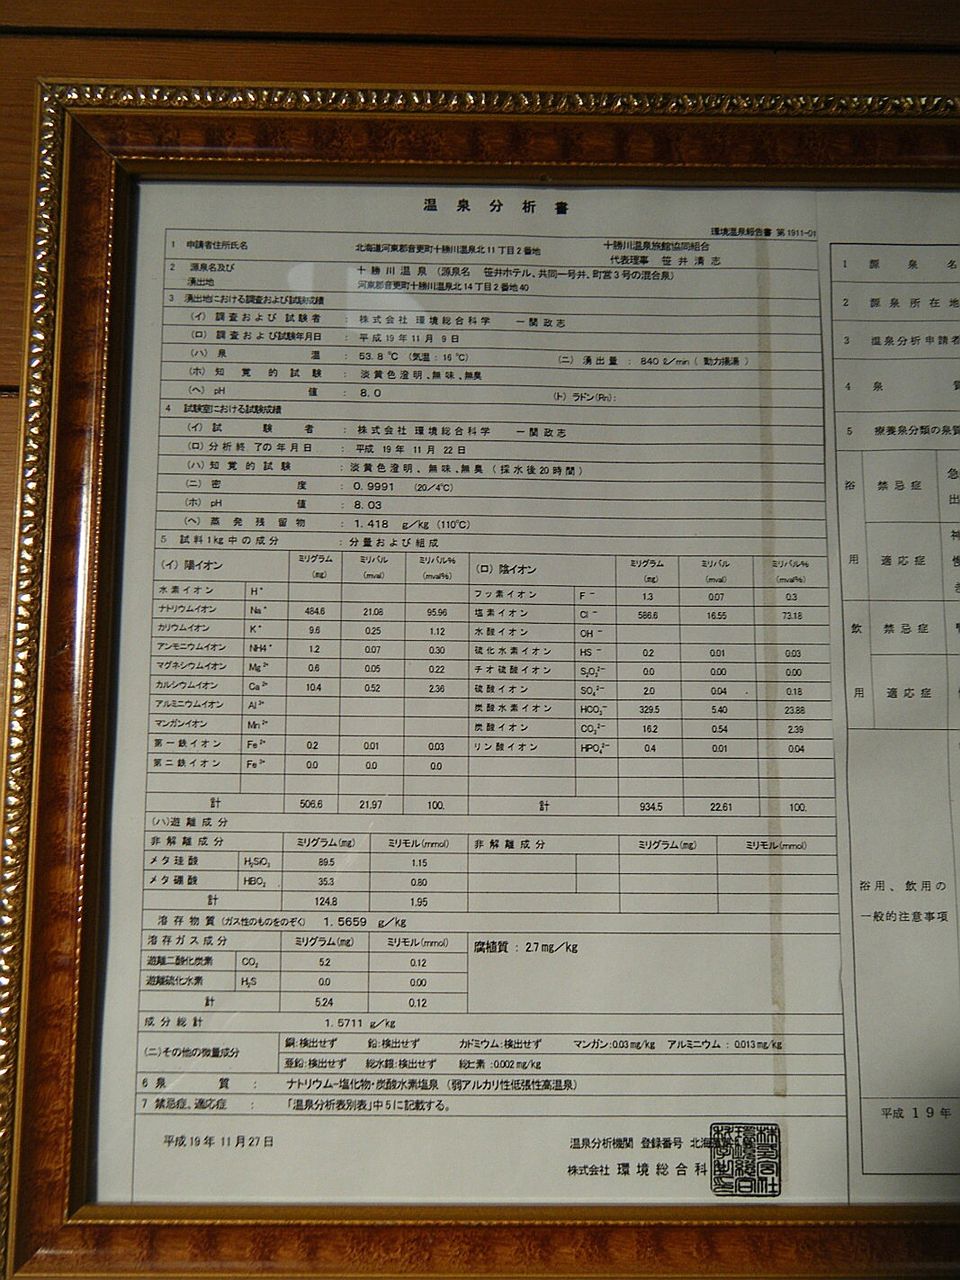 温泉分析書
環境温泉報告書 第1911-01
1 申請者住所氏名 北海道河東郡音更町十勝川温泉北11丁目2番地 十勝川温泉旅館協同組合
代表理事 笹井清志
2 源泉名及び 十勝川温泉(源泉名 笹井ホテル、共同一号井、町営3号の混合泉)
湧出地 河東郡音更町十勝川温泉北14丁目2番地40
3 湧出地における調査および試験成績
(イ)調査および試験者 : 株式会社 環境総合科学 一關政志
(ロ)調査および試験年月日 : 平成19年11月9日
(ハ)泉温 : 53.8℃ (気温:16℃) (ニ)湧出量 : 840ℓ/min(動力揚湯)
(ホ)知覚的試験 : 淡黄色澄明、無味、無臭
(ヘ)pH値 : 8.0 (ト)ラドン(Rn):
4 試験室における試験成績
(イ)試験者 : 株式会社 環境総合科学 一關政志
(ロ)分析終了の年月日 : 平成19年11月22日
(ハ)知覚的試験 : 淡黄色澄明、無味、無臭(採水後20時間)
(ニ)密度 : 0.9991 (20/4℃)
(ホ)pH値 : 8.03
(ヘ)蒸発残留物 : 1.418 g/kg (110℃)
5 試料1kg中の成分 : 分量および組成
(イ)陽イオン ミリグラム(mg) ミリバル(mval) ミリバル%(mval%) (ロ)陰イオン ミリグラム(mg) ミリバル(mval) ミリバル%(mval%)
水素イオン H⁺ フッ素イオン F⁻ 1.3 0.07 0.3
ナトリウムイオン Na⁺ 484.6 21.08 95.96 塩素イオン Cl⁻ 586.6 16.55 73.18
カリウムイオン K⁺ 9.6 0.25 1.12 水酸イオン OH⁻
アンモニウムイオン NH4⁺ 1.2 0.07 0.30 硫化水素イオン HS⁻ 0.2 0.01 0.03
マグネシウムイオン Mg²⁺ 0.6 0.05 0.22 チオ硫酸イオン S₂O₃²⁻ 0.0 0.00 0.00
カルシウムイオン Ca²⁺ 10.4 0.52 2.36 硫酸イオン SO₄²⁻ 2.0 0.04 0.18
アルミニウムイオン Al³⁺ 炭酸水素イオン HCO₃⁻ 329.5 5.40 23.88
マンガンイオン Mn²⁺ 炭酸イオン CO₃²⁻ 16.2 0.54 2.39
第一鉄イオン Fe²⁺ 0.2 0.01 0.03 リン酸イオン HPO₄²⁻ 0.4 0.01 0.04
第二鉄イオン Fe³⁺ 0.0 0.0 0.0
計 506.6 21.97 100. 計 934.5 22.61 100.
(ハ)遊離成分
非解離成分 ミリグラム(mg) ミリモル(mmol) 非解離成分 ミリグラム(mg) ミリモル(mmol)
メタ珪酸 H₂SiO₃ 89.5 1.15
メタ硼酸 HBO₂ 35.3 0.80
計 124.8 1.95
溶存物質(ガス性のものをのぞく) 1.5659 g/kg
溶存ガス成分 ミリグラム(mg) ミリモル(mmol) 腐植質:2.7mg/kg
遊離二酸化炭素 CO₂ 5.2 0.12
遊離硫化水素 H₂S 0.0 0.00
計 5.24 0.12
成分総計 1.5711 g/kg
(ニ)その他の微量成分 銅:検出せず 鉛:検出せず カドミウム:検出せず マンガン:0.03mg/kg アルミニウム:0.013mg/kg
亜鉛:検出せず 総水銀:検出せず 総ヒ素:0.002mg/kg
6 泉質 : ナトリウム-塩化物・炭酸水素塩泉(弱アルカリ性低張性高温泉)
7 禁忌症、適応症 : 「温泉分析表別表」中5に記載する。
平成19年11月27日
温泉分析機関 登録番号 北海
株式会社 環境総合科
1 源泉名
2 源泉所在地
3 温泉分析申請者
4 泉質
5 療養泉分類の泉質
浴用 禁忌症
適応症
飲用 禁忌症
適応症
浴用、飲用の
一般的注意事項
平成19年